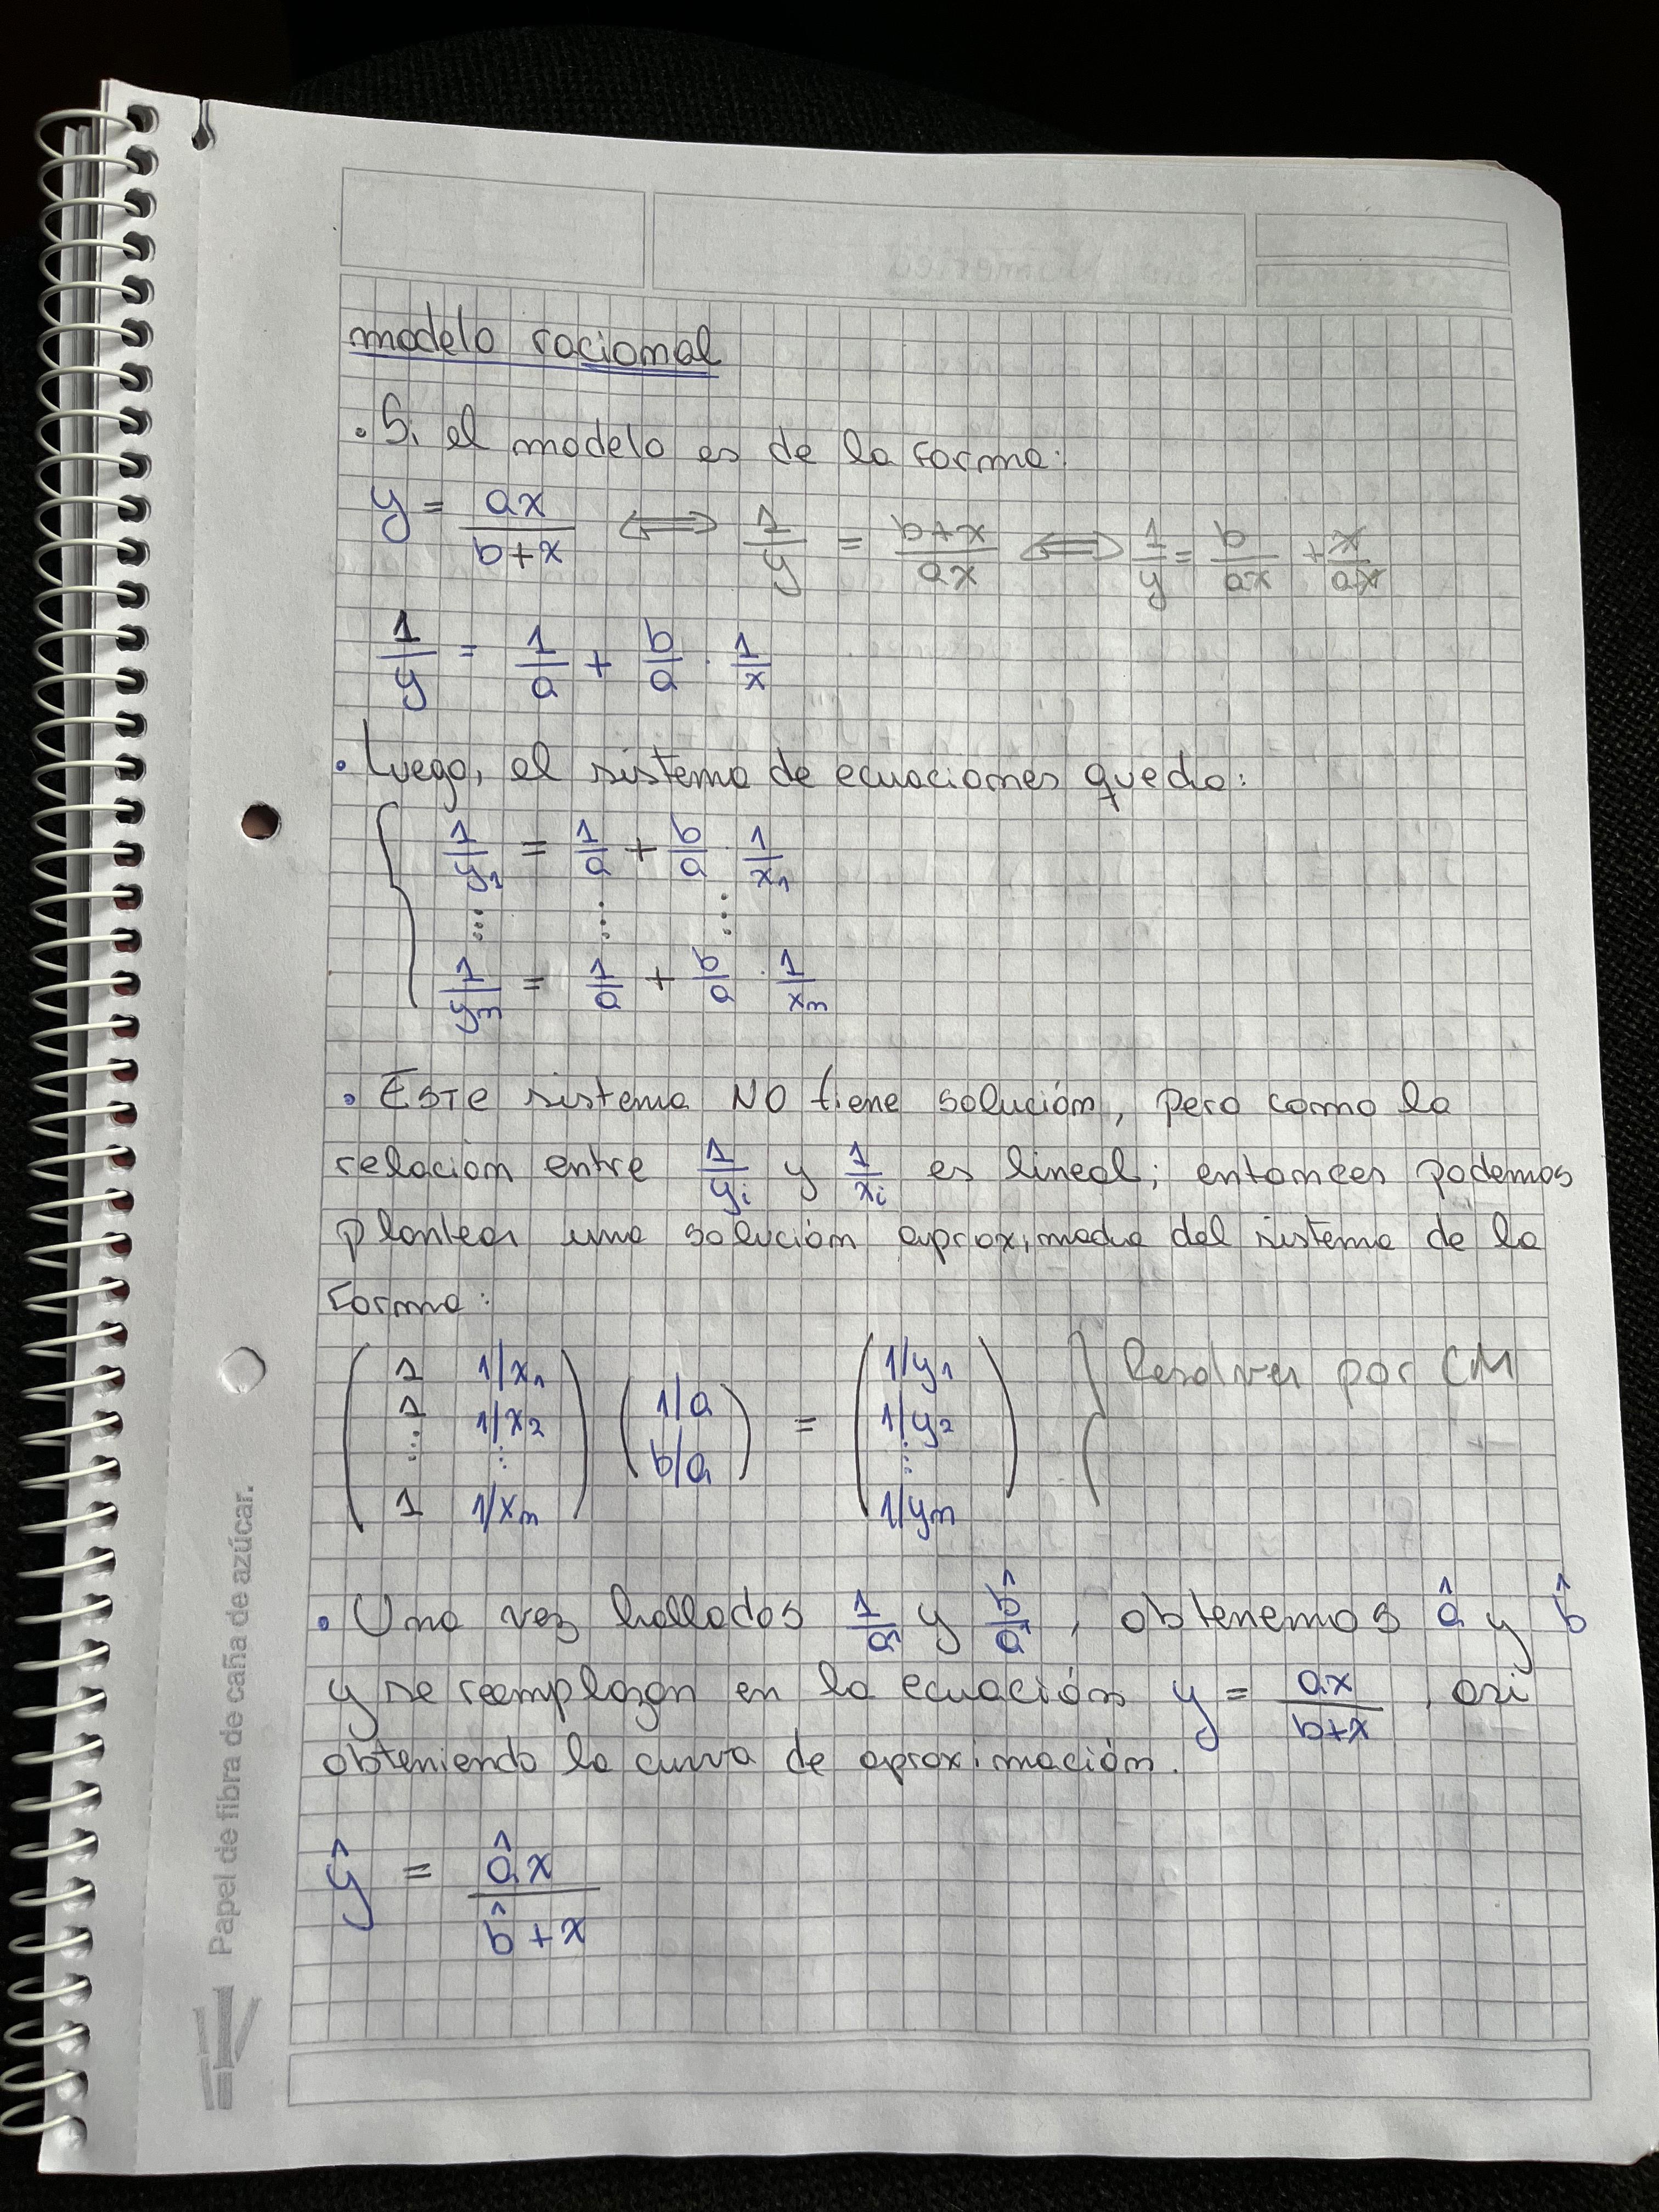 modelo racional
. Si el modelo es de la forma:
y = ax/(b+x) ⟺ 1/y = (b+x)/(ax) ⟺ 1/y = b/(ax) + x/(ax)
1/y = 1/a + b/a · 1/x
. Luego, el sistema de ecuaciones queda:
1/y₁ = 1/a + b/a · 1/x₁
⋮ ⋮ ⋮
1/yₙ = 1/a + b/a · 1/xₙ
. Este sistema NO tiene solución, pero como la
relacion entre 1/yᵢ y 1/xᵢ es lineal; entonces podemos
plantear una solución aproximada del sistema de la
forma:
( 1 1/x₁ ; 1 1/x₂ ; ⋮ ⋮ ; 1 1/xₙ ) ( 1/a ; b/a ) = ( 1/y₁ ; 1/y₂ ; ⋮ ; 1/yₙ ) } Resolver por CM
. Una vez hallados 1/â y b̂/â, obtenemos â y b̂
y se reemplazan en la ecuación y = ax/(b+x), asi
obteniendo la curva de aproximación.
ŷ = âx/(b̂+x)
Papel de fibra de caña de azúcar.